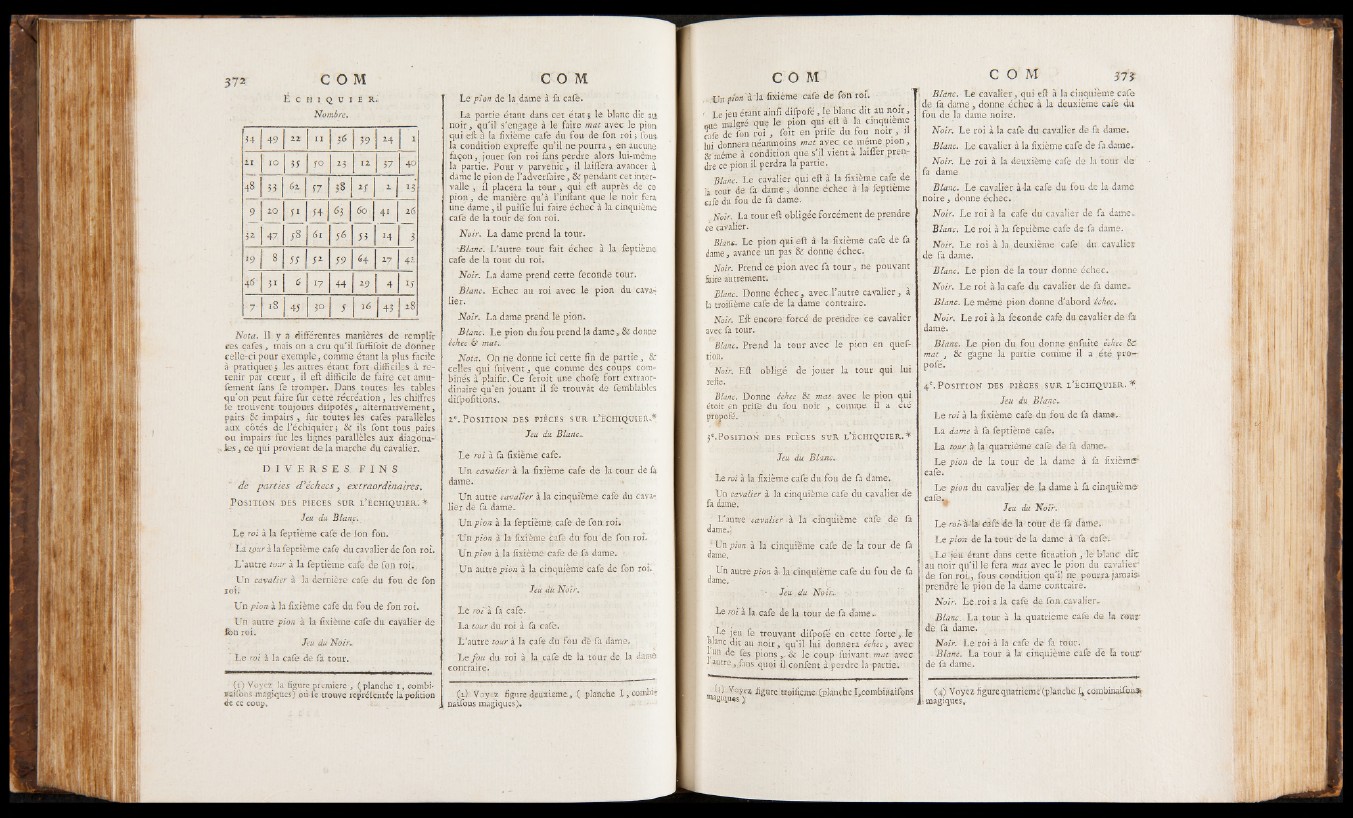 372 COM
ÉCHIQUIER.
Nombre.
34 49 22 11 36 39 24 1
21 10 35 50 23 12 37 40
48 33 62 57 38 25 2 13
9 20 51 54 63 60 41 26
32 47 58 61 56 53 14 3
19 8 55 52 59 64 27 42
46 31 6 17 44 29 4 15
7 18 45 30 5 16 43 28
Nota. Il y a différentes manières de remplir
ces caſes, mais on a cru qu'il ſuffiſoit de donner
celle-ci pour exemple, comme étant la plus facile
à pratiquer; les autres étant fort difficiles à re-
tenir par cœur, il eſt difficile de faire cet amu-
ſement ſans ſe tromper. Dans toutes les tables
qu'on peut faire ſur cette récréation, les chiffres
ſe trouvent toujours diſpoſés, alternativement,
pairs & impairs, ſur toutes les caſes parallèles
aux côtés de l'échiquier; & ils ſont tous pairs
ou impairs ſur les lignes parallèles aux diagona-
les, ce qui provient de la marche du cavalier.
DIVERSES FINS
de parties d'échecs, extraordinaires.
POSITION DES PIECES SUR L'ECHIQUIER. *
Jeu du Blanc.
Le roi à ſa ſeptième caſe de ſon fou.
La tour à la ſeptième caſe du cavalier de ſon roi.
L'autre tour à la ſeptième caſe de ſon roi.
Un cavalier à la dernière caſe du fou de ſon
roi.
Un pion à la ſixième caſe du fou de ſon roi.
Un autre pion à la ſixième caſe du cavalier de
ſon roi.
Jeu du Noir.
Le roi à la caſe de ſa tour.
(1) Voyez la figure première, (planche 1, combi-
naiſons magiques) où ſe trouve repréſentée la poſition
de ce coup.
COM
Le pion de la dame à ſa caſe.
La partie étant dans cet état; le blanc dit au
noir, qu'il s'engage à le faire mat avec le pion
qui eſt à la ſixième caſe du fou de ſon roi; ſous
la condition expreſſe qu'il ne pourra, en aucune
façon, jouer ſon roi ſans perdre alors lui-même
la partie. Pour y parvenir, il laiſſera avancer à
dame le pion de l'adverſaire, & pendant cet inter-
valle, il placera la tour, qui eſt auprès de ce
pion, de manière qu'à l'inſtant que le noir fera
une dame, il puiſſe lui faire échec à la cinquième
caſe de la tour de ſon roi.
Noir. La dame prend la tour.
Blanc. L'autre tour fait échec à la ſeptième
caſe de la tour du roi.
Noir. La dame prend cette ſeconde tour.
Blanc. Echec au roi avec le pion du cava-
lier.
Noir. La dame prend le pion.
Blanc. Le pion du fou prend la dame, & donne
échec & mat.
Nota. On ne donne ici cette fin de partie, &
celles qui ſuivent, que comme des coups com-
binés à plaiſir. Ce ſeroit une choſe fort extraor-
dinaire qu'en jouant il ſe trouvât de ſemblables
diſpoſitions.
2e. POSITION DES PIÈCES SUR L'ÉCHIQUIER.*
Jeu du Blanc.
Le roi à ſa ſixième caſe.
Un cavalier à la ſixième caſe de la tour de ſa
dame.
Un autre cavalier à la cinquième caſe du cava-
lier de ſa dame.
Un pion à la ſeptième caſe de ſon roi.
Un pion à la ſixième caſe du fou de ſon roi.
Un pion à la ſixième caſe de ſa dame.
Un autre pion à la cinquième caſe de ſon roi.
Jeu du Noir.
Le roi à ſa caſe.
La tour du roi à ſa caſe.
L'autre tour à la caſe du fou de ſa dame.
Le fou du roi à la caſe de la tour de la dame
contraire.
(2) Voyez figure deuxième, ( planche I, combi-
naiſons magiques).
COM
Un pion à la ſixième caſe de ſon roi.
Le jeu étant ainſi diſpoſé, le blanc dit au noir,
que malgré que le pion qui eſt à la cinquième
caſe de ſon roi, ſoit en priſe du fou noir, il
lui donnera néanmoins mat avec ce même pion,
& même à condition que s'il vient à laiſſer pren-
dre ce pion il perdra la partie.
Blanc. Le cavalier qui eſt à la ſixième caſe de
la tour de ſa dame, donne échec à la ſeptième
caſe du fou de ſa dame.
Noir. La tour eſt obligée forcément de prendre
ce cavalier.
Blanc. Le pion qui eſt à la ſixième caſe de ſa
dame, avance un pas & donne échec.
Noir. Prend ce pion avec ſa tour, ne pouvant
faire autrement.
Blanc. Donne échec, avec l'autre cavalier, à
la troiſième caſe de la dame contraire.
Noir. Eſt encore forcé de prendre ce cavalier
avec ſa tour.
Blanc. Prend la tour avec le pion en queſ-
tion.
Noir. Eſt obligé de jouer la tour qui lui
reſte.
Blanc. Donne échec & mat avec le pion qui
étoit en priſe du fou noir, comme il a été
propoſé.
3e. POSITION DES PIÈCES SUR L'ÉCHIQUIER. *
Jeu du Blanc.
Le roi à la ſixième caſe du fou de ſa dame.
Un cavalier à la cinquième caſe du cavalier de
ſa dame.
L'autre cavalier à la cinquième caſe de ſa
dame.
Un pion à la cinquième caſe de la tour de ſa
dame.
Un autre pion à la cinquième caſe du fou de ſa
dame.
Jeu du Noir.
Le roi à la caſe de la tour de ſa dame.
Le jeu ſe trouvant diſpoſé en cette ſorte, le
blanc dit au noir, qu'il lui donnera échec, avec
l'un de ſes pions, & le coup ſuivant mat avec
l'autre, ſans quoi il conſent à perdre la partie.
(3) Voyez figure troiſième (planche I, combinaiſons
magiques)
COM 373
Blanc. Le cavalier, qui eſt à la cinquième caſe
de ſa dame, donne échec à la deuxième caſe du
fou de la dame noire.
Noir. Le roi à la caſe du cavalier de ſa dame.
Blanc. Le cavalier à la ſixième caſe de ſa dame.
Noir. Le roi à la deuxième caſe de la tour de
ſa dame
Blanc. Le cavalier à la caſe du fou de la dame
noire, donne échec.
Noir. Le roi à la caſe du cavalier de ſa dame.
Blanc. Le roi à la ſeptième caſe de ſa dame.
Noir. Le roi à la deuxième caſe du cavalier
de ſa dame.
Blanc. Le pion de la tour donne échec.
Noir. Le roi à la caſe du cavalier de ſa dame.
Blanc. Le même pion donne d'abord échec.
Noir. Le roi à la ſeconde caſe du cavalier de ſa
dame.
Blanc. Le pion du fou donne enſuite échec &
mat, & gagne la partie comme il a été pro-
poſé.
4e. POSITION DES PIÈCES SUR L'ÉCHIQUIER. *
Jeu du Blanc.
Le roi à la ſixième caſe du fou de ſa dame.
La dame à ſa ſeptième caſe.
La tour à la quatrième caſe de ſa dame.
Le pion de la tour de la dame à ſa ſixième
caſe.
Le pion du cavalier de la dame à ſa cinquième
caſe.
Jeu du Noir.
Le roi à la caſe de la tour de ſa dame.
Le pion de la tour de la dame à ſa caſe.
Le jeu étant dans cette ſituation, le blanc dit
au noir qu'il le fera mat avec le pion du cavalier
de ſon roi, ſous condition qu'il ne pourra jamais
prendre le pion de la dame contraire.
Noir. Le roi à la caſe de ſon cavalier.
Blanc. La tour à la quatrième caſe de la tour
de ſa dame.
Noir. Le roi à la caſe de ſa tour.
Blanc. La tour à la cinquième caſe de la tour
de ſa dame.
(4) Voyez figure quatrième (planche I, combinaiſons
magiques.